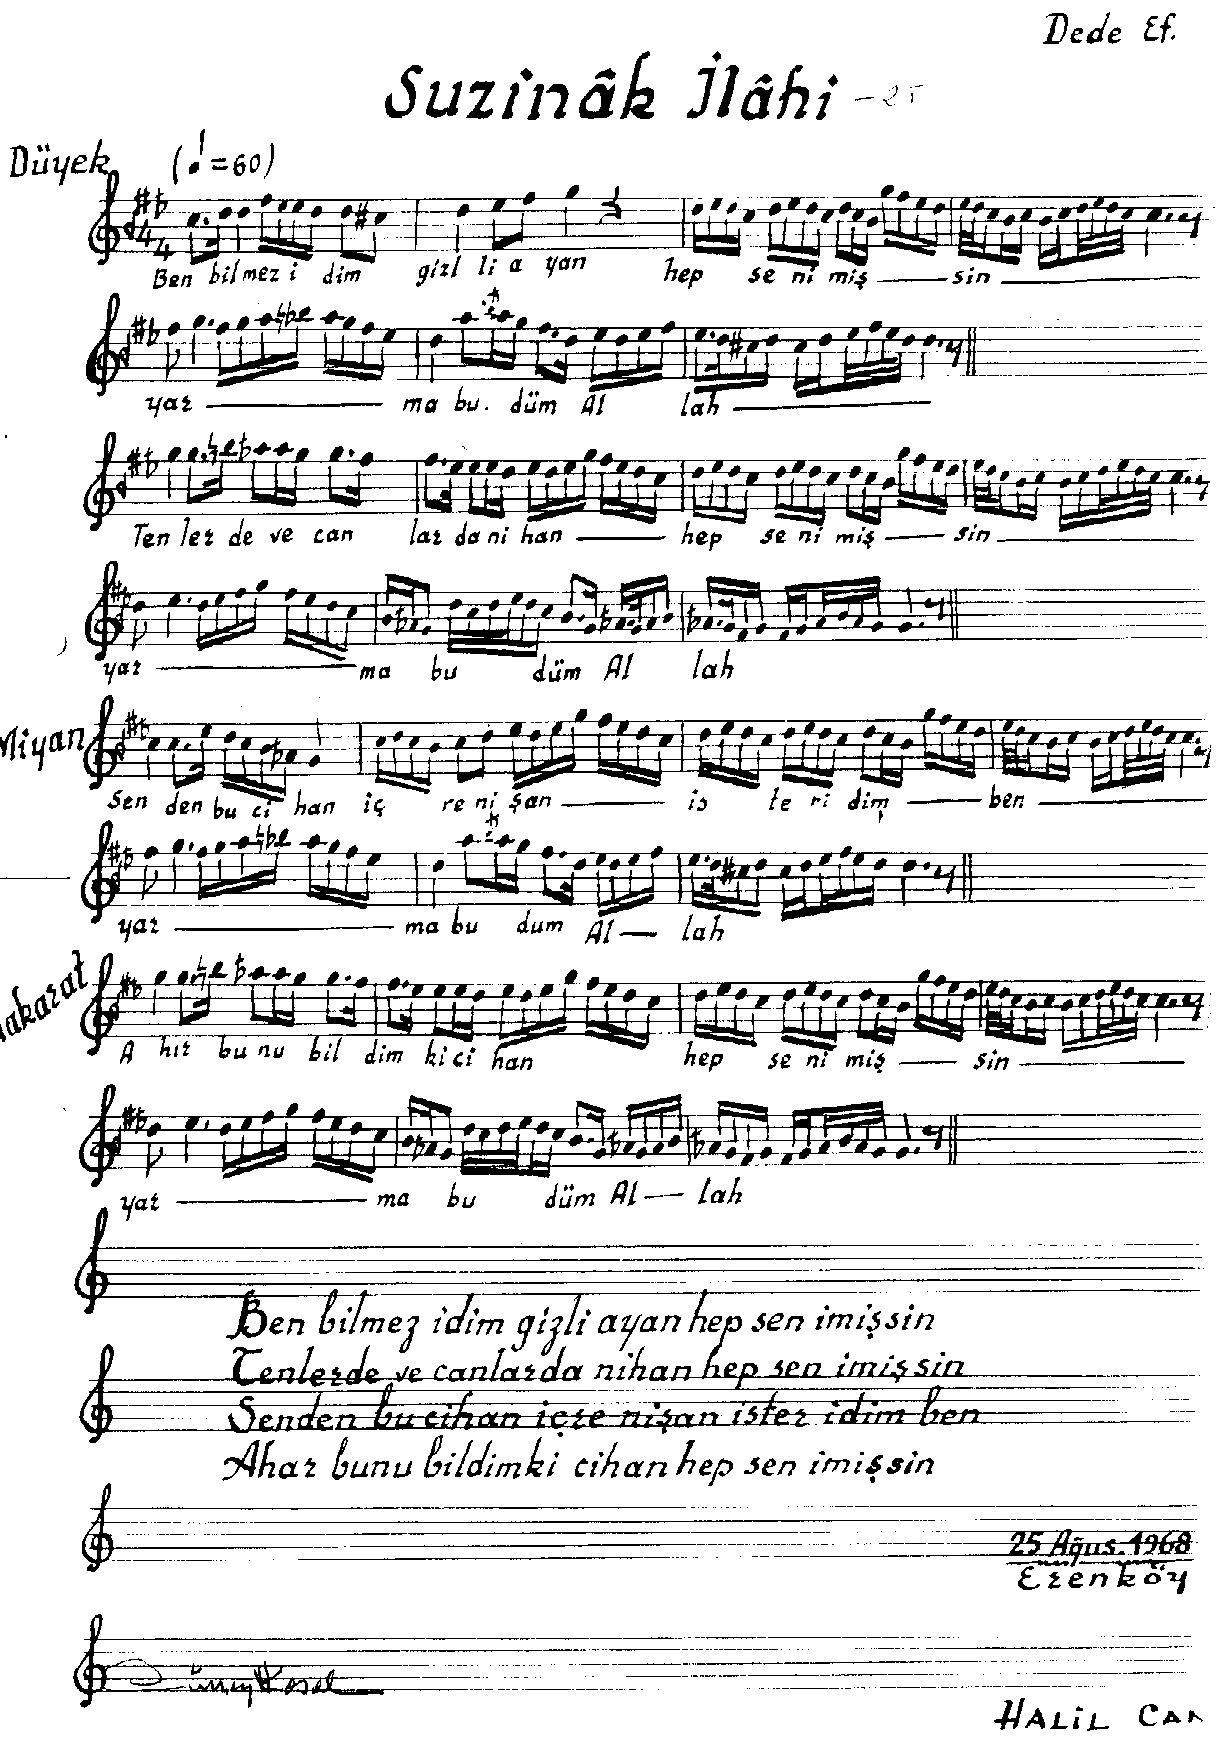 Dede Ef.
Suzinâk İlâhi -25
Düyek (♩=60)
Ben bilmez i dim gizl li a yan hep se ni miş sin
yar ma bu. düm Al lah
Ten ler de ve can lar da ni han hep se ni miş sin
yar ma bu düm Al lah
Miyan
Sen den bu ci han iç re ni şan is te ri dim ben
yar ma bu dum Al lah
nakarat
A hır bu nu bil dim ki ci han hep se ni miş sin
yar ma bu düm Al lah
Ben bilmez idim gizli ayan hep sen imişsin
Tenlerde ve canlarda nihan hep sen imişsin
Senden bu cihan içre nişan ister idim ben
Ahar bunu bildimki cihan hep sen imişsin
25 Ağus. 1968
Erenköy
HALİL CAN